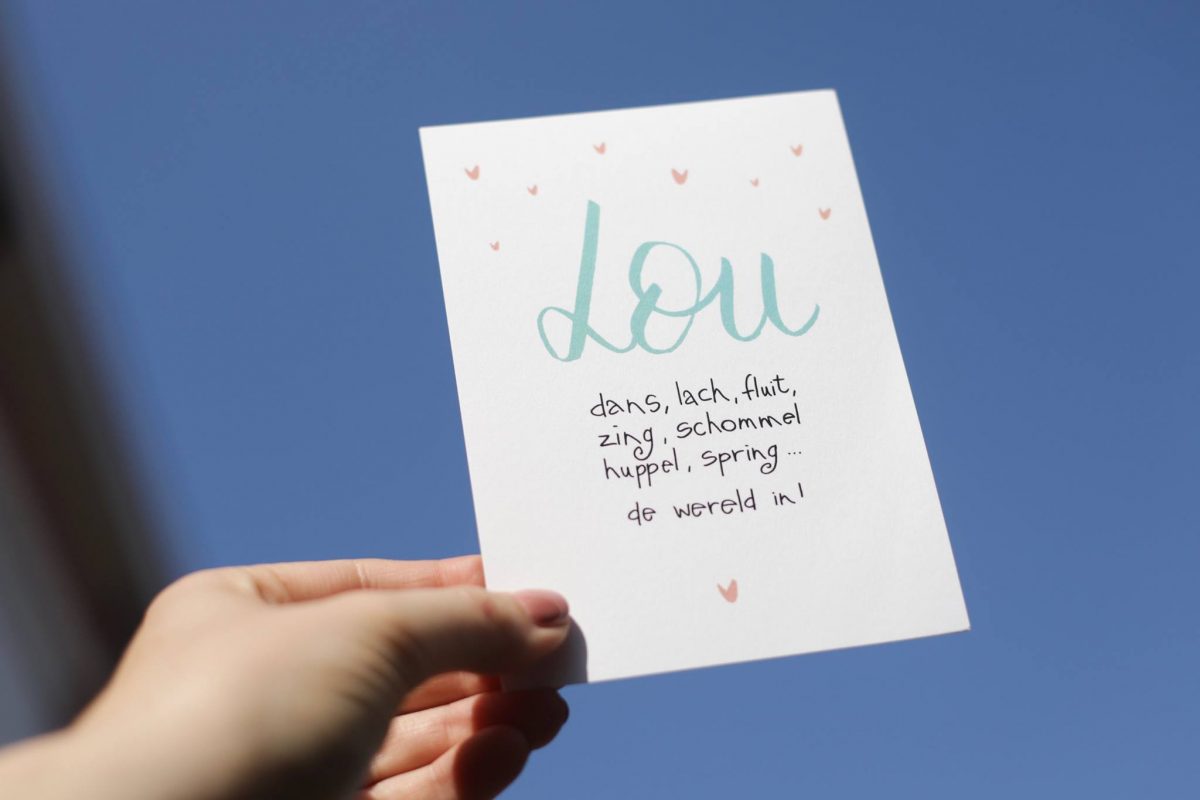 Lou
dans, lach, fluit,
zing, schommel
huppel, spring...
de wereld in!